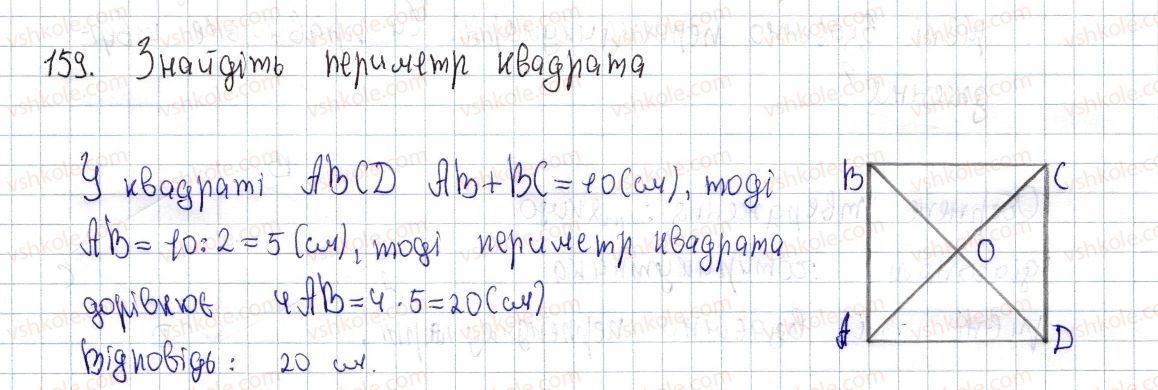 159. Знайдіть периметр квадрата
У квадраті ABCD AB+BC=10(см), тоді
AB=10:2=5(см), тоді периметр квадрата
дорівнює 4AB=4·5=20(см)
Відповідь: 20 см.
B C
O
A D
vshkole.com